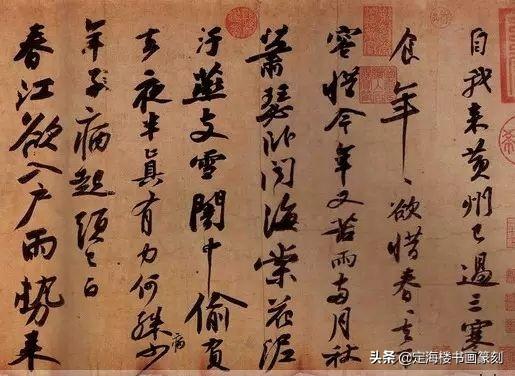 自我来黄州已過三寒
食年〻欲惜春〻去
容惜今年又苦雨兩月秋
蕭瑟卧聞海棠花泥
汙燕支雪闇中偷負
去夜半真有力何殊少
病
年子病起頭已白
春江欲入戶雨勢来
头条 @定海楼书画篆刻